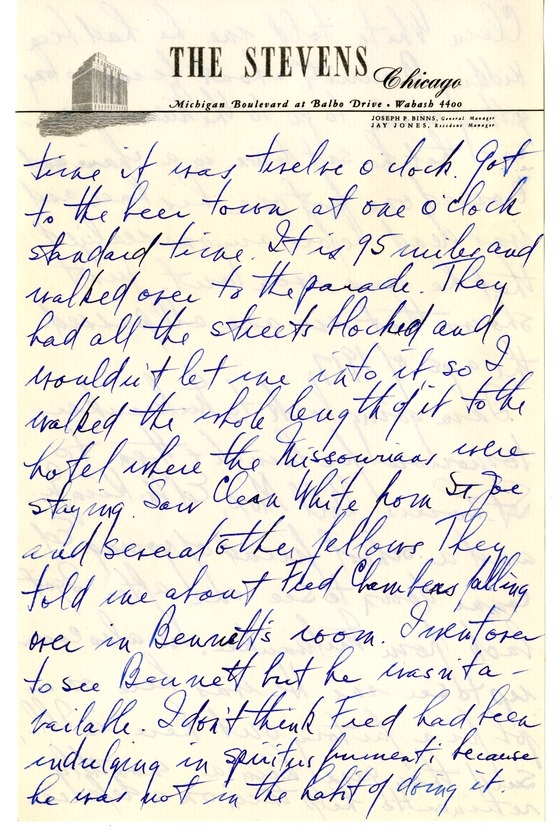 THE STEVENS
Chicago
Michigan Boulevard at Balbo Drive • Wabash 4400
JOSEPH P. BINNS, General Manager
JAY JONES, Resident Manager
time it was twelve o clock. Got
to the beer town at one o'clock
standard time. It is 95 miles and
walked over to the parade. They
had all the streets blocked and
wouldn't let me into it so I
walked the whole length of it to the
hotel where the Missourians were
staying. Saw Clean White from St. Joe
and several other fellows They
told me about Fred Chambers falling
over in Bennett's room. I went over
to see Bennett but he wasn't a-
vailable. I don't think Fred had been
indulging in spiritus frumenti because
he was not in the habit of doing it.